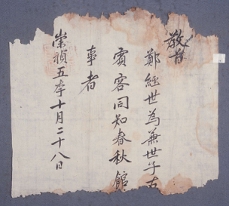 敎旨
鄭經世爲兼世子右
賓客同知春秋館
事者
崇禎五年十月二十八日